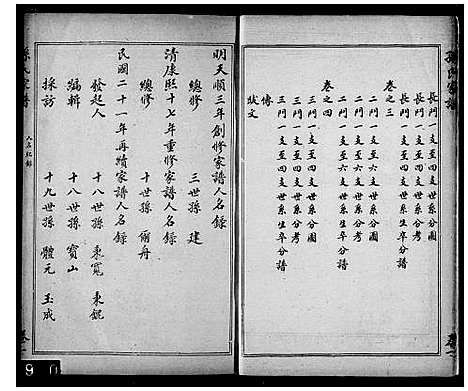 孫氏家譜
長門一支至四支世系分圖
長門一支至四支世系分考
長門一支至四支世系生卒分譜
卷之三
二門一支至六支世系分圖
二門一支至六支世系分考
二門一支至六支世系生卒分譜
卷之四
三門一支至四支世系分圖
三門一支至四支世系分考
三門一支至四支世系生卒分譜
傳
狀文
明天順三年創修家譜人名錄
總修 三世孫 建
清康熙十七年重修家譜人名錄
總修 十世孫 爾舟
民國二十一年再續家譜人名錄
發起人 十八世孫 秉寬 秉銳
編輯 十八世孫 寶山
採訪 十九世孫 體元 玉成
孫氏家譜
人名紀錄
卷
90